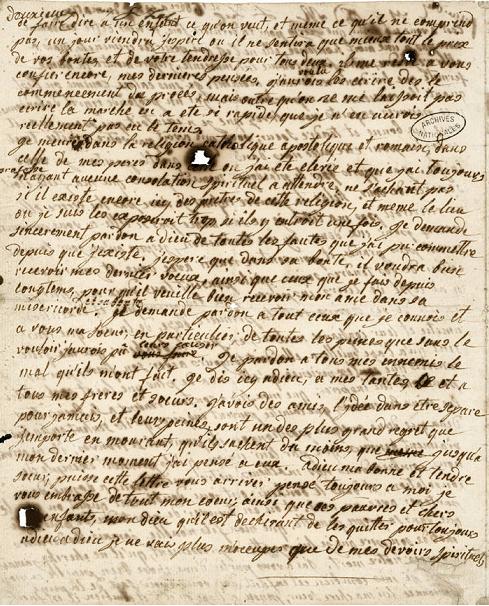 de faire dire a un enfant ce qu'on veut, et meme ce qu'il ne comprend
pas, un jour viendra j'espere, ou il ne sentira que mieux tout le prix
de vos bontés et de votre tendresse pour tous deux. il me reste a vous
confier encore, mes dernieres pensées, j'aurois voulu les ecrire des le
commencement du proces, mais outre qu'on ne me laissoit pas
ecrire la marche en a ete si rapide, que je n'en aurois
reellement pas eu le tems.
je meurs dans la religion catholique apostolique et romaine, dans
celle de mes peres, dans ou j'ai ete elevée et que j'ai toujours
n'ayant aucune consolation spirituel a attendre, ne sachant pas
s'il existe encore ici des pretres de cette religion, et meme le lieu
ou je suis les exposeroit trop si ils y entroit une fois, je demande
sincerement pardon a dieu de toutes les fautes que j'ai pu commettre
depuis que j'existe. j'espere que dans sa bonté, il voudra bien
recevoir mes derniers voeux, ainsi que ceux que je fais depuis
longtems, pour qu'il veuille bien recevoir mon ame dans sa
misericorde. et sa bonté je demande pardon a tout ceux que je connois et
a vous ma soeur en particulier de toutes les peines que sans le
vouloir j'aurois pu leurs causer je pardonne a tous mes ennemis le
mal qu'ils m'ont fait. je dis ici adieu a mes tantes et a
tous mes freres et soeurs. j'avois des amis, l'idée d'en etre separe
pour jamais, et leurs peines, sont un des plus grand regret que
j'emporte en mourant, qu'ils sachent du moins, que jusqu'a
mon dernier moment j'ai pensé a eux. adieu ma bonne et tendre
soeur, puisse cette lettre vous arriver, pensé toujours a moi, je
vous embrasse de tout mon coeur, ainsi que ces pauvres et chers
enfants, mon dieu qu'il est dechirant de les quitter pour toujours
adieu adieu je ne vais plus m'occuper que de mes devoirs spirituels
ARCHIVES
NATIONALES